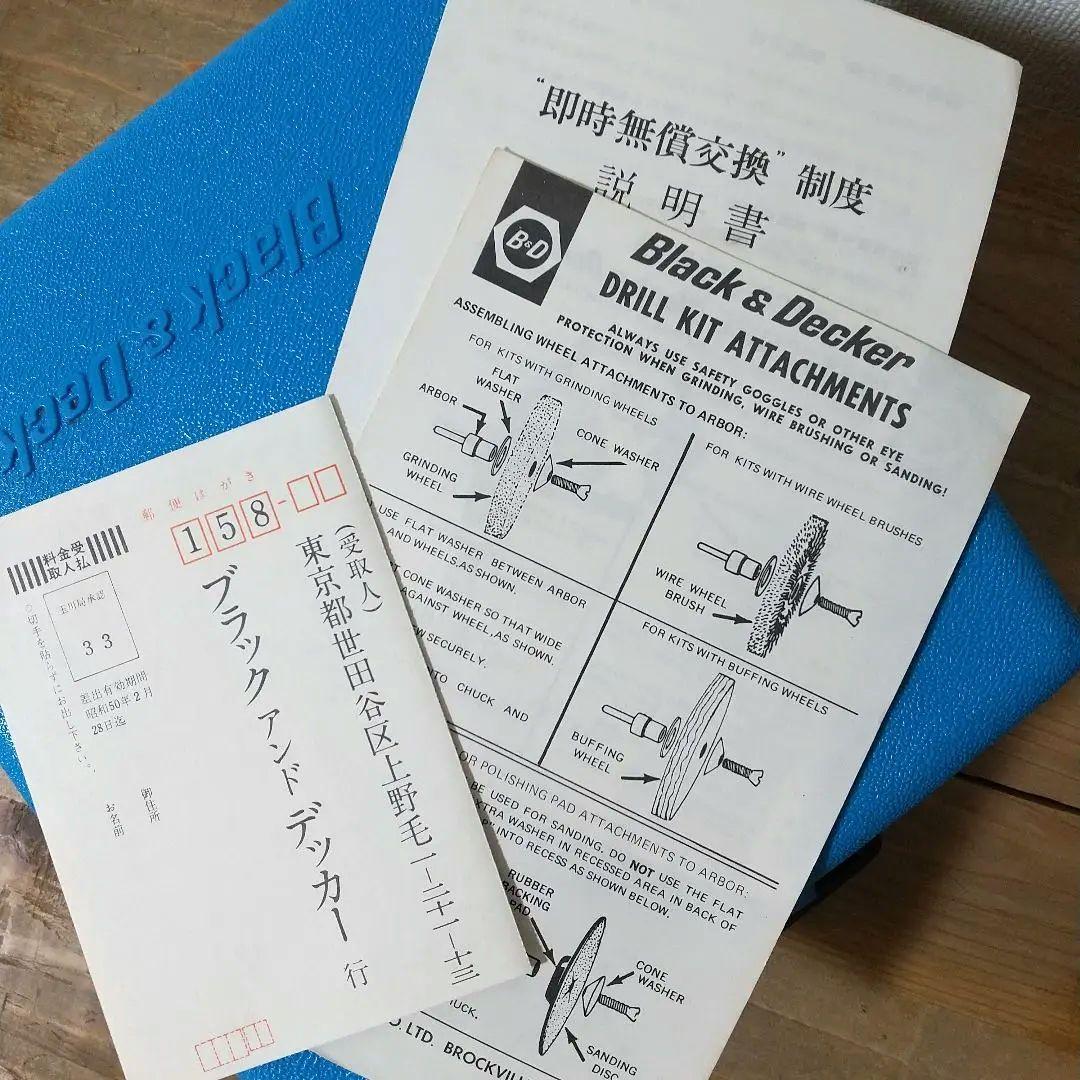 Black & Deck
"即時無償交換"制度
説明書
B&D
Black & Decker
DRILL KIT ATTACHMENTS
ALWAYS USE SAFETY GOGGLES OR OTHER EYE
PROTECTION WHEN GRINDING, WIRE BRUSHING OR SANDING!
ASSEMBLING WHEEL ATTACHMENTS TO ARBOR:
FOR KITS WITH GRINDING WHEELS
FLAT
WASHER
ARBOR
CONE WASHER
GRINDING
WHEEL
FOR KITS WITH WIRE WHEEL BRUSHES
WIRE WHEEL
BRUSH
USE FLAT WASHER BETWEEN ARBOR
AND WHEELS, AS SHOWN.
CONE WASHER SO THAT WIDE
AGAINST WHEEL, AS SHOWN.
SECURELY.
TO CHUCK AND
FOR KITS WITH BUFFING WHEELS
BUFFING
WHEEL
OR POLISHING PAD ATTACHMENTS TO ARBOR:
BE USED FOR SANDING, DO NOT USE THE FLAT
WASHER IN RECESSED AREA IN BACK OF
INTO RECESS AS SHOWN BELOW.
RUBBER
BACKING
PAD
CONE
WASHER
SANDING
DISC
LTD. BROCKVILL
郵便はがき
158-
料金受
取人払
玉川局承認
33
差出有効期間
昭和50年2月
28日迄
○切手を貼らずにお出し下さい。
(受取人)
東京都世田谷区上野毛一ー二十一ー十三
ブラック アンド デッカー 行
御住所
お名前